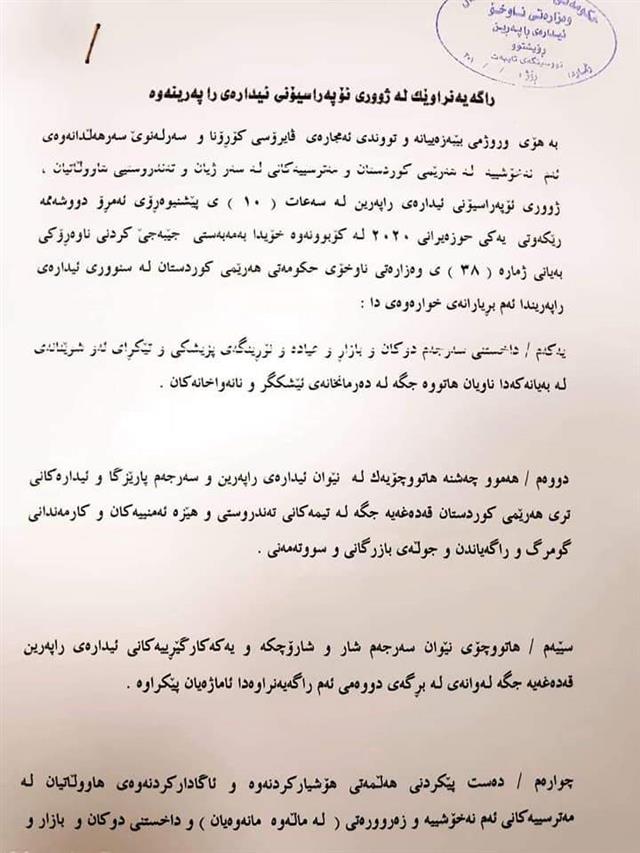 وەزارەتی ناوخۆ
ئیدارەی ڕاپەڕین
راگەیەنراوێك لە ژووری ئۆپەراسیۆنی ئیدارەی را پەرینەوە
بە هۆی وروژمی بێبەزەییانە و تووندی ئەمجارەی ڤایرۆسی کۆرۆنا و سەرلەنوێ سەرهەڵدانەوەی
ئەم نەخۆشییە لە هەرێمی کوردستان و مەترسییەکانی لە سەر ژیان و تەندروستی هاووڵاتیان ،
ژووری ئۆپەراسیۆنی ئیدارەی راپەرین لە سەعات ( ١٠ ) ی پێشنیوەڕۆی ئەمرۆ دووشەممە
رێکەوتی یەکی حوزەیرانی ٢٠٢٠ لە کۆبوونەوە خۆیدا بەمەبەستی جێبەجێ کردنی ناوەڕۆکی
بەیانی ژمارە ( ٣٨ ) ی وەزارەتی ناوخۆی حکومەتی هەرێمی کوردستان لە سنووری ئیدارەی
راپەریندا ئەم بڕیارانەی خوارەوەی دا :
یەکەم / داخستنی سەرجەم دوکان و بازاڕ و عیادە و نۆرینگەی پزیشکی و تێکڕای ئەو شوێنانەی
لە بەیانەکەدا ناویان هاتووە جگە لە دەرمانخانەی ئێشکگر و نانەواخانەکان .
دووەم / هەموو چەشنە هاتووچۆیەك لە نێوان ئیدارەی راپەرین و سەرجەم پارێزگا و ئیدارەکانی
تری هەرێمی کوردستان قەدەغەیە جگە لە تیمەکانی تەندروستی و هێزە ئەمنییەکان و کارمەندانی
گومرگ و راگەیاندن و جوڵەی بازرگانی و سووتەمەنی .
سێیەم / هاتووچۆی نێوان سەرجەم شار و شارۆچکە و یەکەکارگێڕییەکانی ئیدارەی راپەرین
قەدەغەیە جگە لەوانەی لە بڕگەی دووەمی ئەم راگەیەنراوەدا ئاماژەیان پێکراوە .
چوارەم / دەست پێکردنی هەڵمەتی هۆشیارکردنەوە و ئاگادارکردنەوەی هاووڵاتیان لە
مەترسییەکانی ئەم نەخۆشییە و زەروورەتی ( لە ماڵەوە مانەوەیان ) و داخستنی دوکان و بازار و